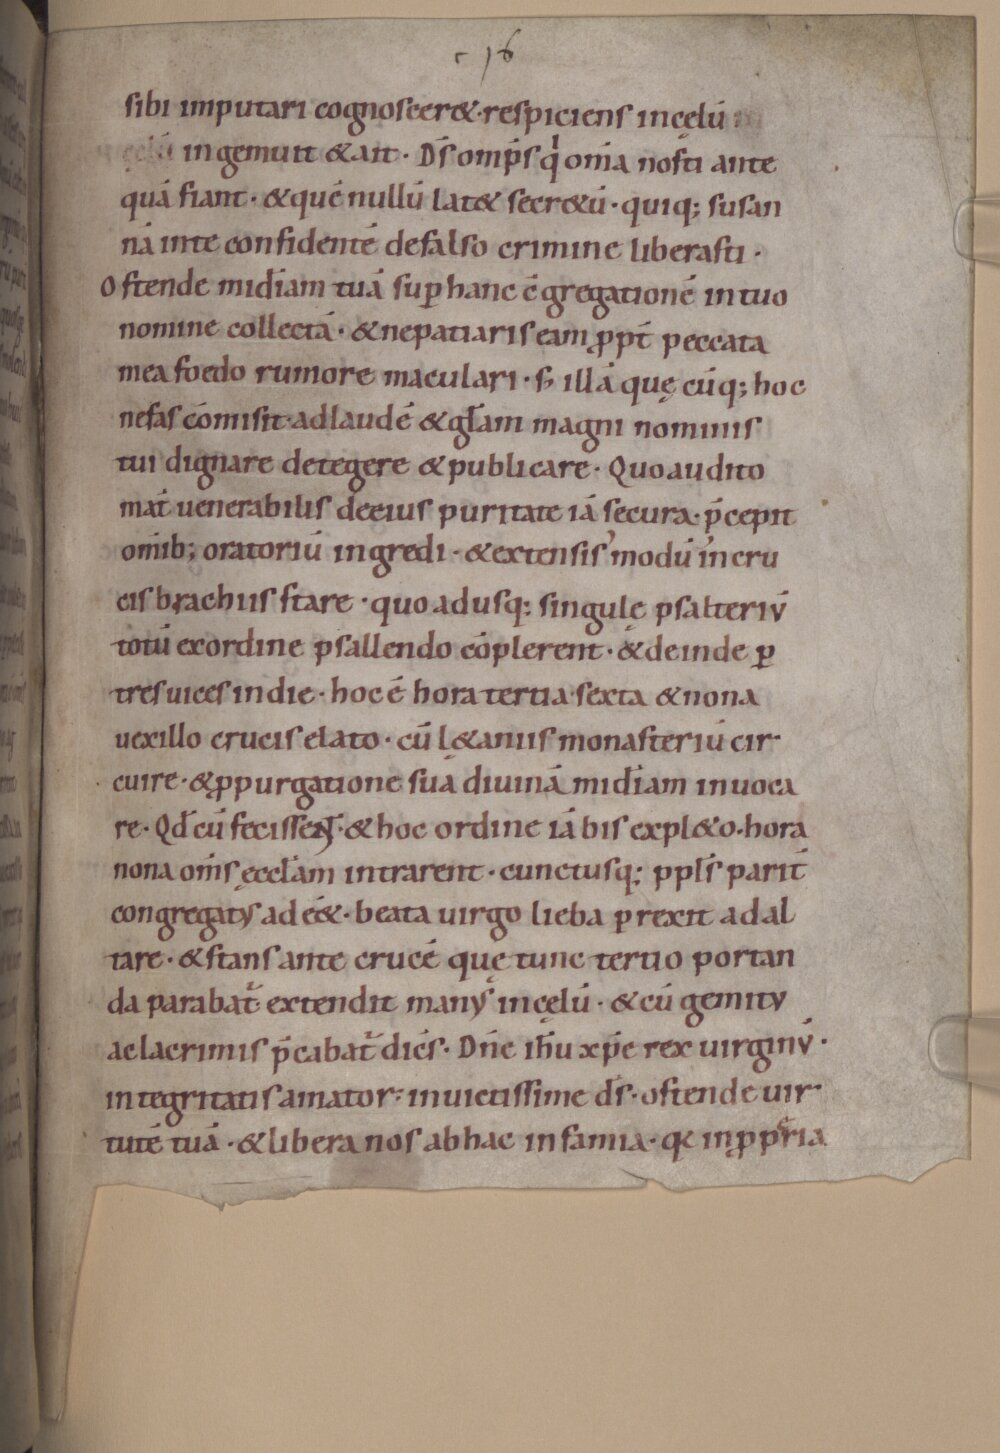 16
sibi imputari cognoscer&· respiciens in cęlū
ingemuit & ait · Dš omp̄s q̇ om̄a nosti ante
quā fiant · & quē nullū lat& secr&ū · quiq; susan
nā in te confidentē de falso crimine liberasti ·
Ostende mīdiam tuā sup̱ hanc c̄gregationē in tuo
nomine collectā · & ne patiaris eam ꝓpt̄ peccata
mea foedo rumore maculari · s; illā quę cūq; hoc
nefas cōmisit · ad laudē & gł̄am magni nominis
tui dignare detegere & publicare · Quo audito
mat̄ uenerabilis de eius puritate iā secura · p̄cepit
om̄ib; oratoriū ingredi · & extensis modū in cru
cis brachiis stare · quo adusq; singulę psalteriū
totū ex ordine psallendo cōplerent · & deinde ꝑ
tres uices in die · hoc ē hora tertia · sexta & nona
uexillo crucis elato · cū l&aniis monasteriū cir
cuire · & ꝓ purgatione sua diuinā mīdiam inuoca
re · Qd̄ cū fecissent · & hoc ordine iā bis expl&o · hora
nona om̄s ęccłam intrarent · cunctusq; ppl̄s parit̄
congregatus adē& · beata uirgo lieba prexit ad al
tare · & stans ante crucē quę tunc tertio portan
da parabat̄ extendit manus in cęlū · & cū gemitu
ac lacrimis p̄cabat̄ dicēs · Dn̄e ih̄u xp̄e rex uirginū ·
integritatis amator · inuictissime ds̄ · ostende uir
tutē tuā · & libera nos ab hac infamia · q̄ inꝓpria